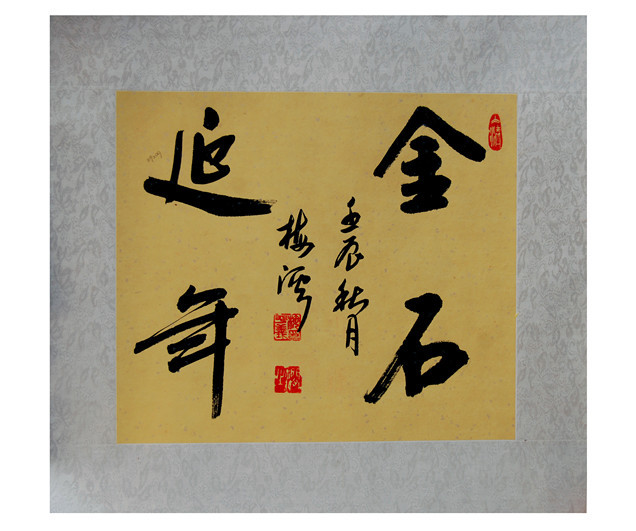 金石
延年
壬辰秋月
梅溪